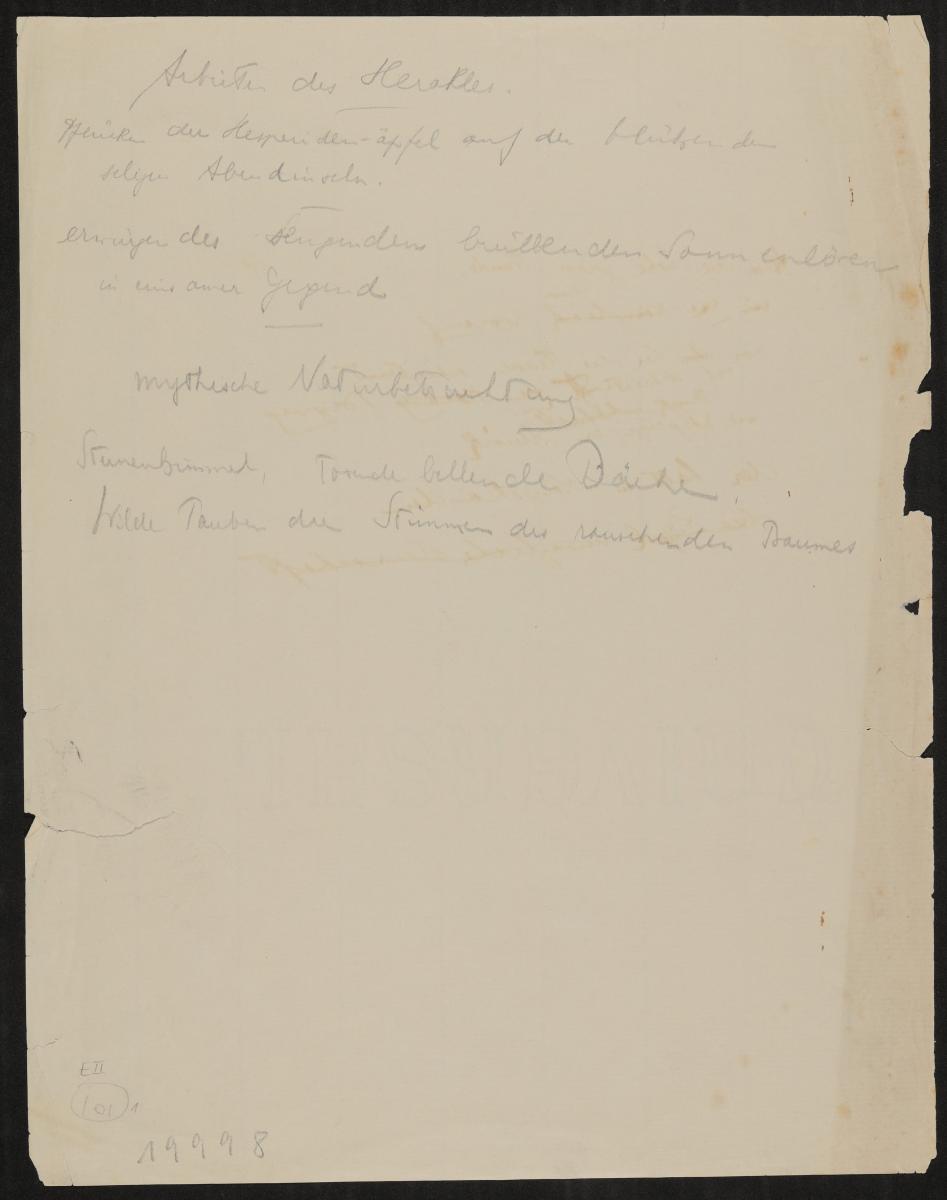 Arbeiten des Herakles.
Pflücken der Hesperiden-äpfel auf den blühenden
seligen Abendinseln.
erwürgen des sengenden brüllenden Sonnenlöwen
in einsamer Gegend
mythische Naturbetrachtung
Sternenhimmel, bellende Bäche,
Wilde Tauben den Stimmen des rauschenden Baumes
EII
101 1
19998